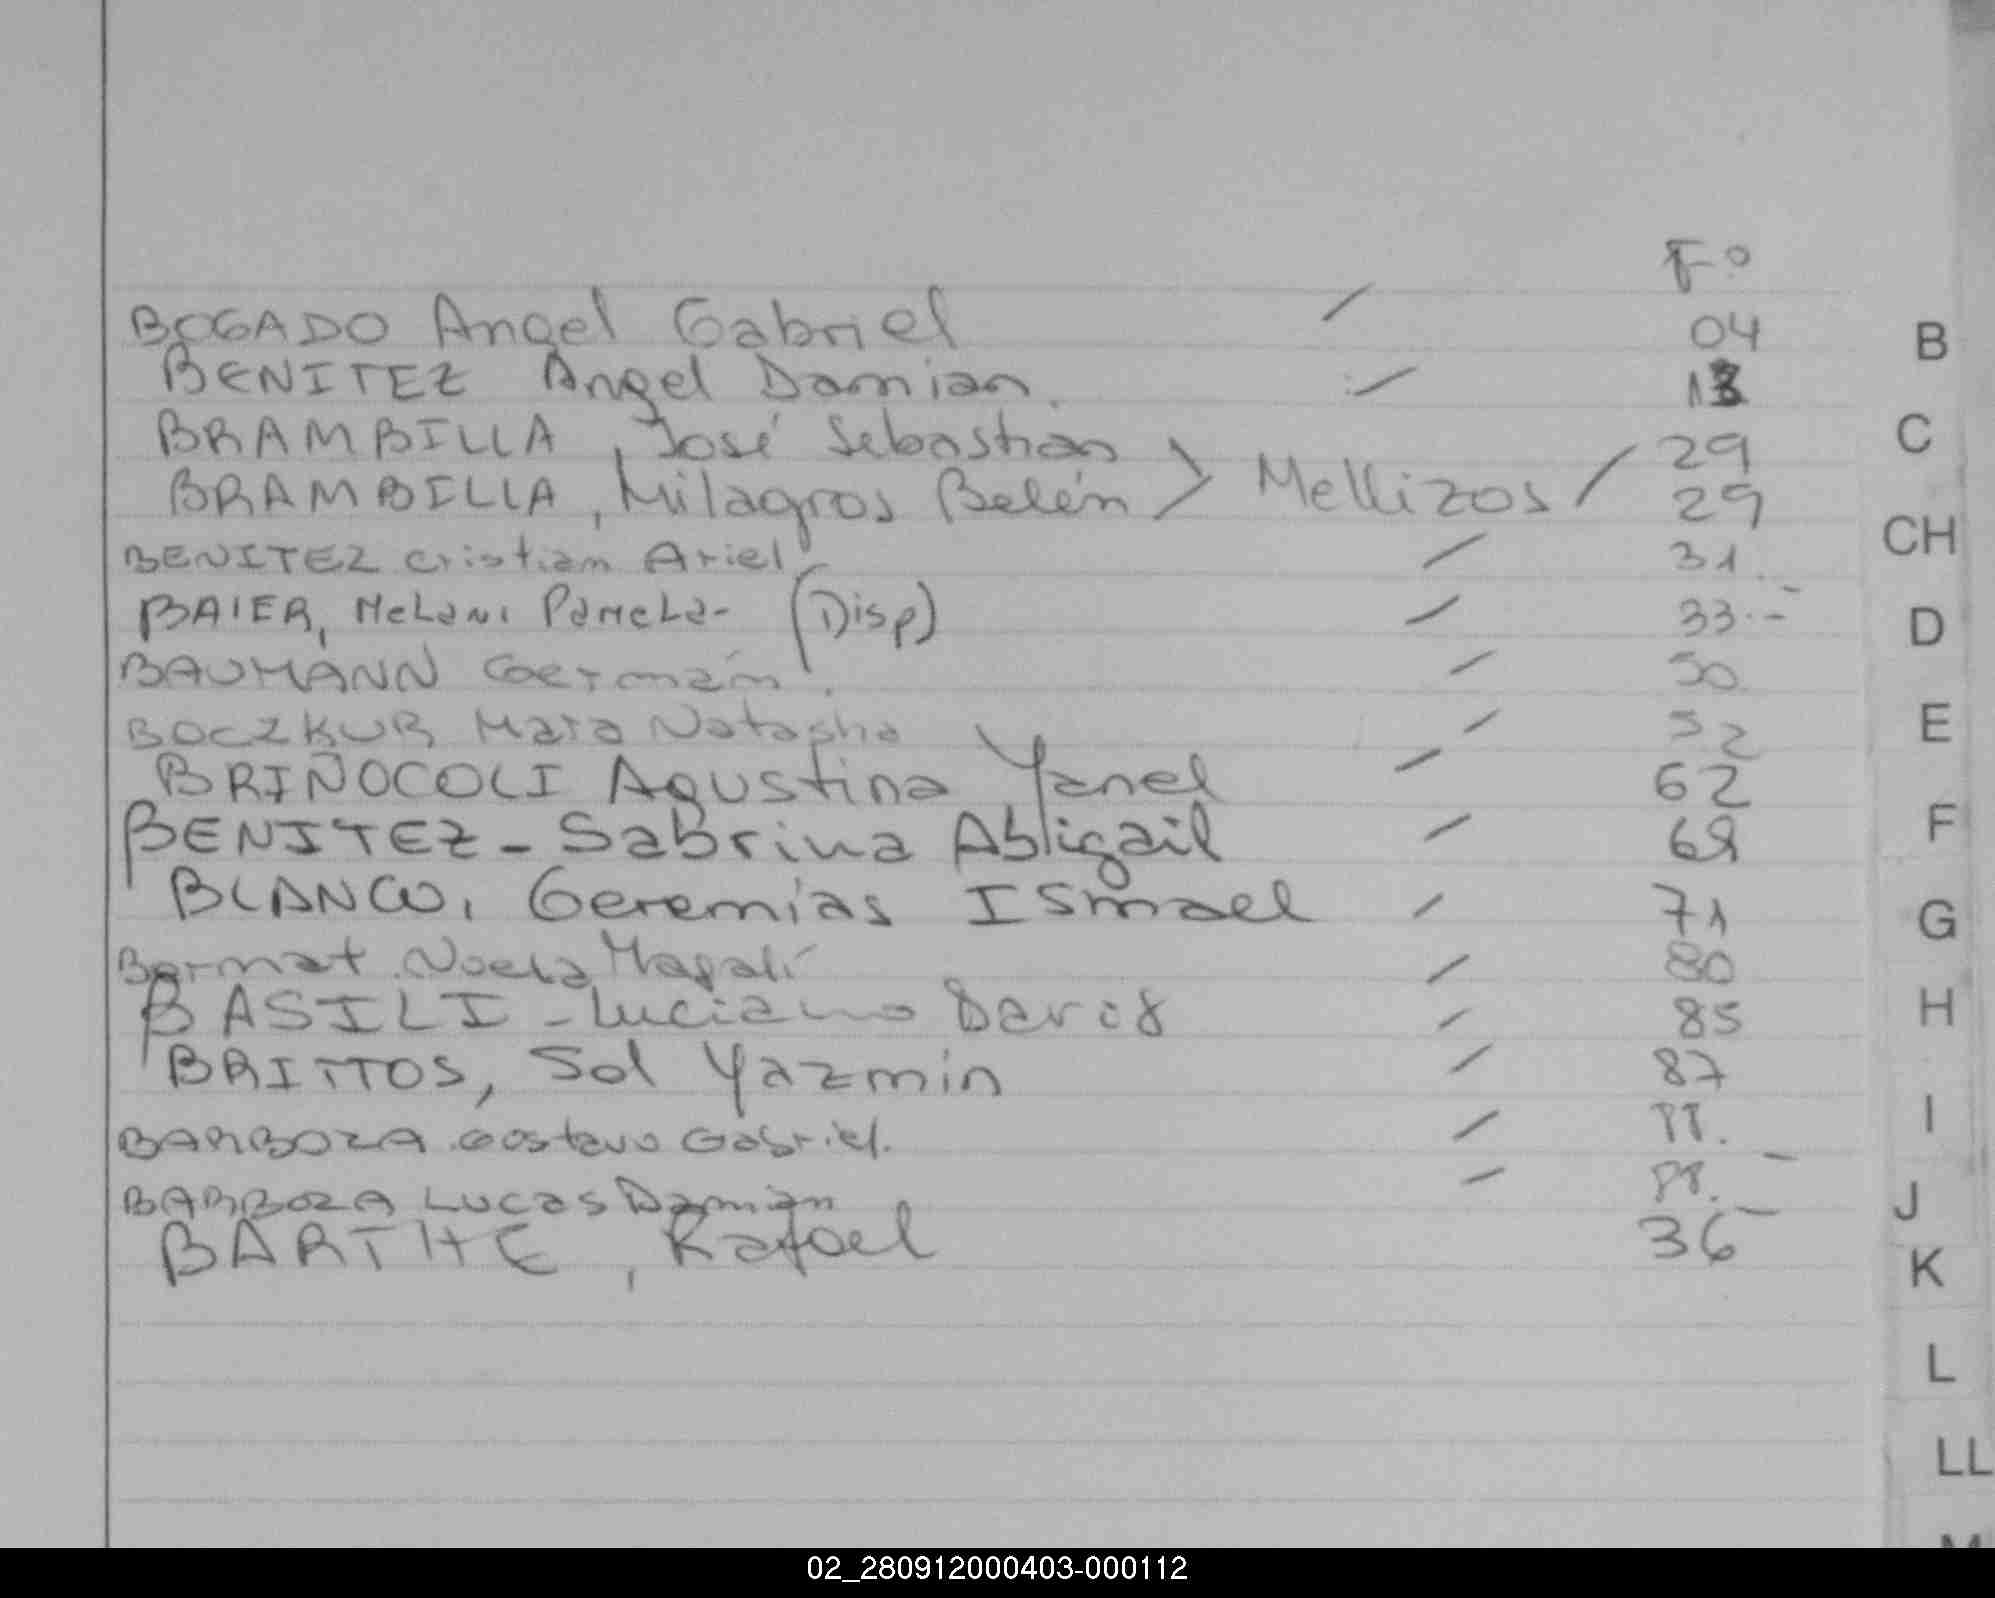 F.°
BOGADO Angel Gabriel / 04 B
BENITEZ Angel Damian. / 13
BRAMBILLA, José Sebastian 29 C
BRAMBILLA, Milagros Belén > Mellizos / 29
BENITEZ Cristian Ariel / 31. CH
BAIER, MeLani PameLa- (Disp) / 33.- D
BAUMANN Germán. / 50
BOCZKUR Mara Natasha / 52 E
BRIÑOCOLI Agustina Yanel / 62
BENITEZ - Sabrina Abigail / 69 F
BLANCO, Geremías Ismael / 71 G
Bermat Noelia Magalí / 80
BASILI - Luciano / 85 H
BRITTOS, Sol Yazmin / 87
BARBOZA Gustavo Gabriel. / 88. - I
BARBOZA Lucas Damián / 88. - J
BARTHE, Rafael 36
K
L
LL
M
02_280912000403-000112